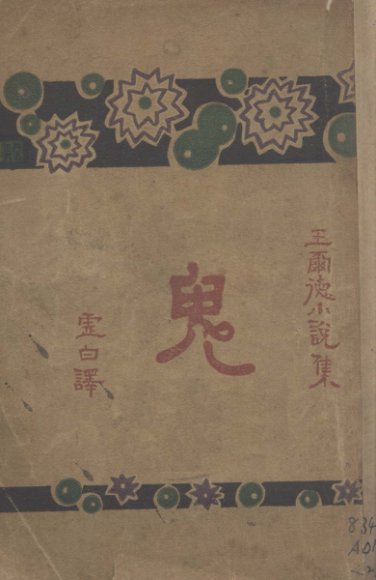 王爾德小說集
鬼
虛白譯
834